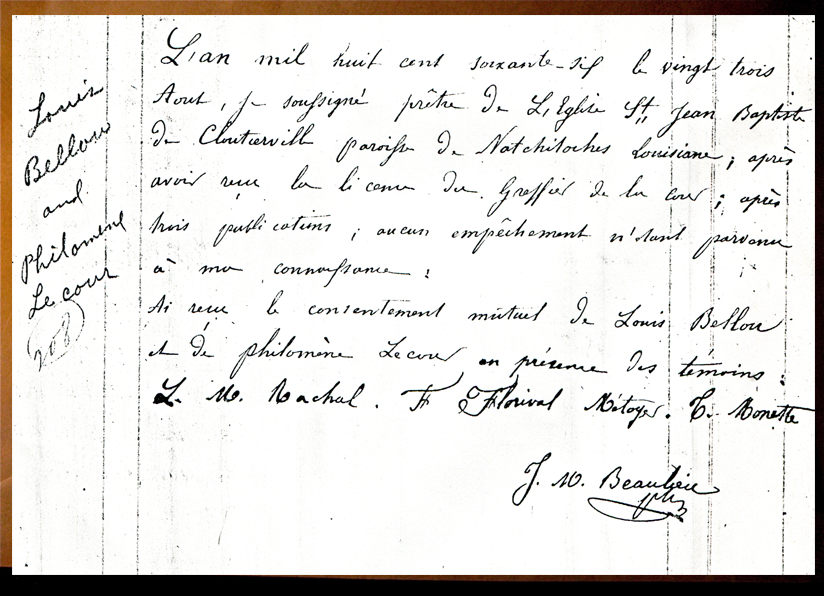 Louis
Bellow
and
Philomene
Lecour
208
L'an mil huit cent soixante-six le vingt trois
Aout, je soussigné prêtre de L'Eglise St Jean Baptiste
de Cloutierville paroisse de Natchitoches Louisiane; après
avoir reçu la licence du Greffier de la cour; après
trois publications; aucun empêchement n'étant parvenu
à ma connaissance:
Ai reçu le consentement mutuel de Louis Bellow
et de philomène Lecour en présence des témoins:
L. M. Rachal. F Florival Metoyer. T. Monette
J. M. Beaulieu